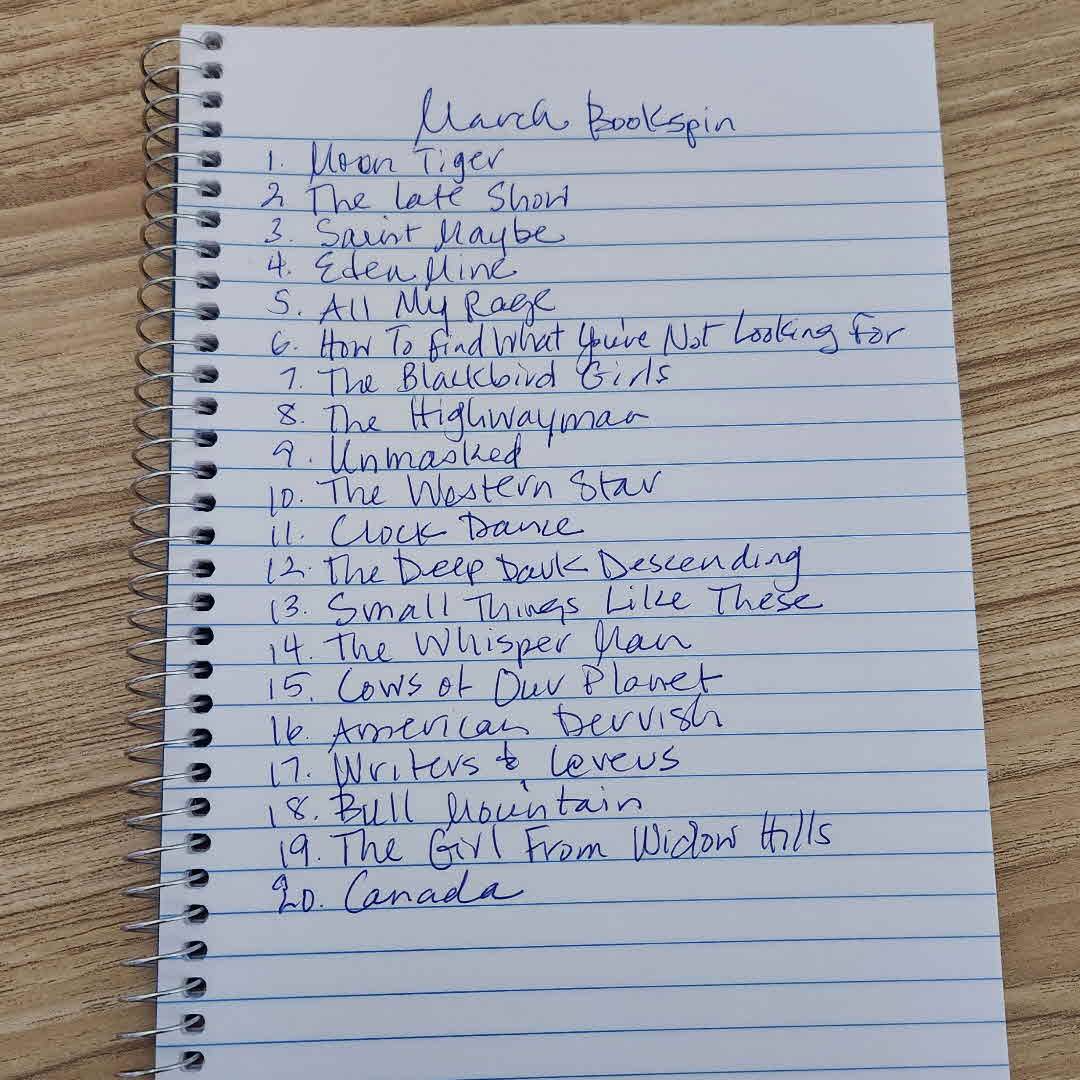 March Bookspin
1. Moon Tiger
2 The Late Show
3. Saint Maybe
4. Eden Mine
5. All My Rage
6. How To Find What You're Not Looking For
7. The Blackbird Girls
8. The Highwayman
9. Unmasked
10. The Western Star
11. Clock Dance
12. The Deep Dark Descending
13. Small Things Like These
14. The Whisper Man
15. Cows of Our Planet
16. American Dervish
17. Writers & Lovers
18. Bull Mountain
19. The Girl From Widow Hills
20. Canada